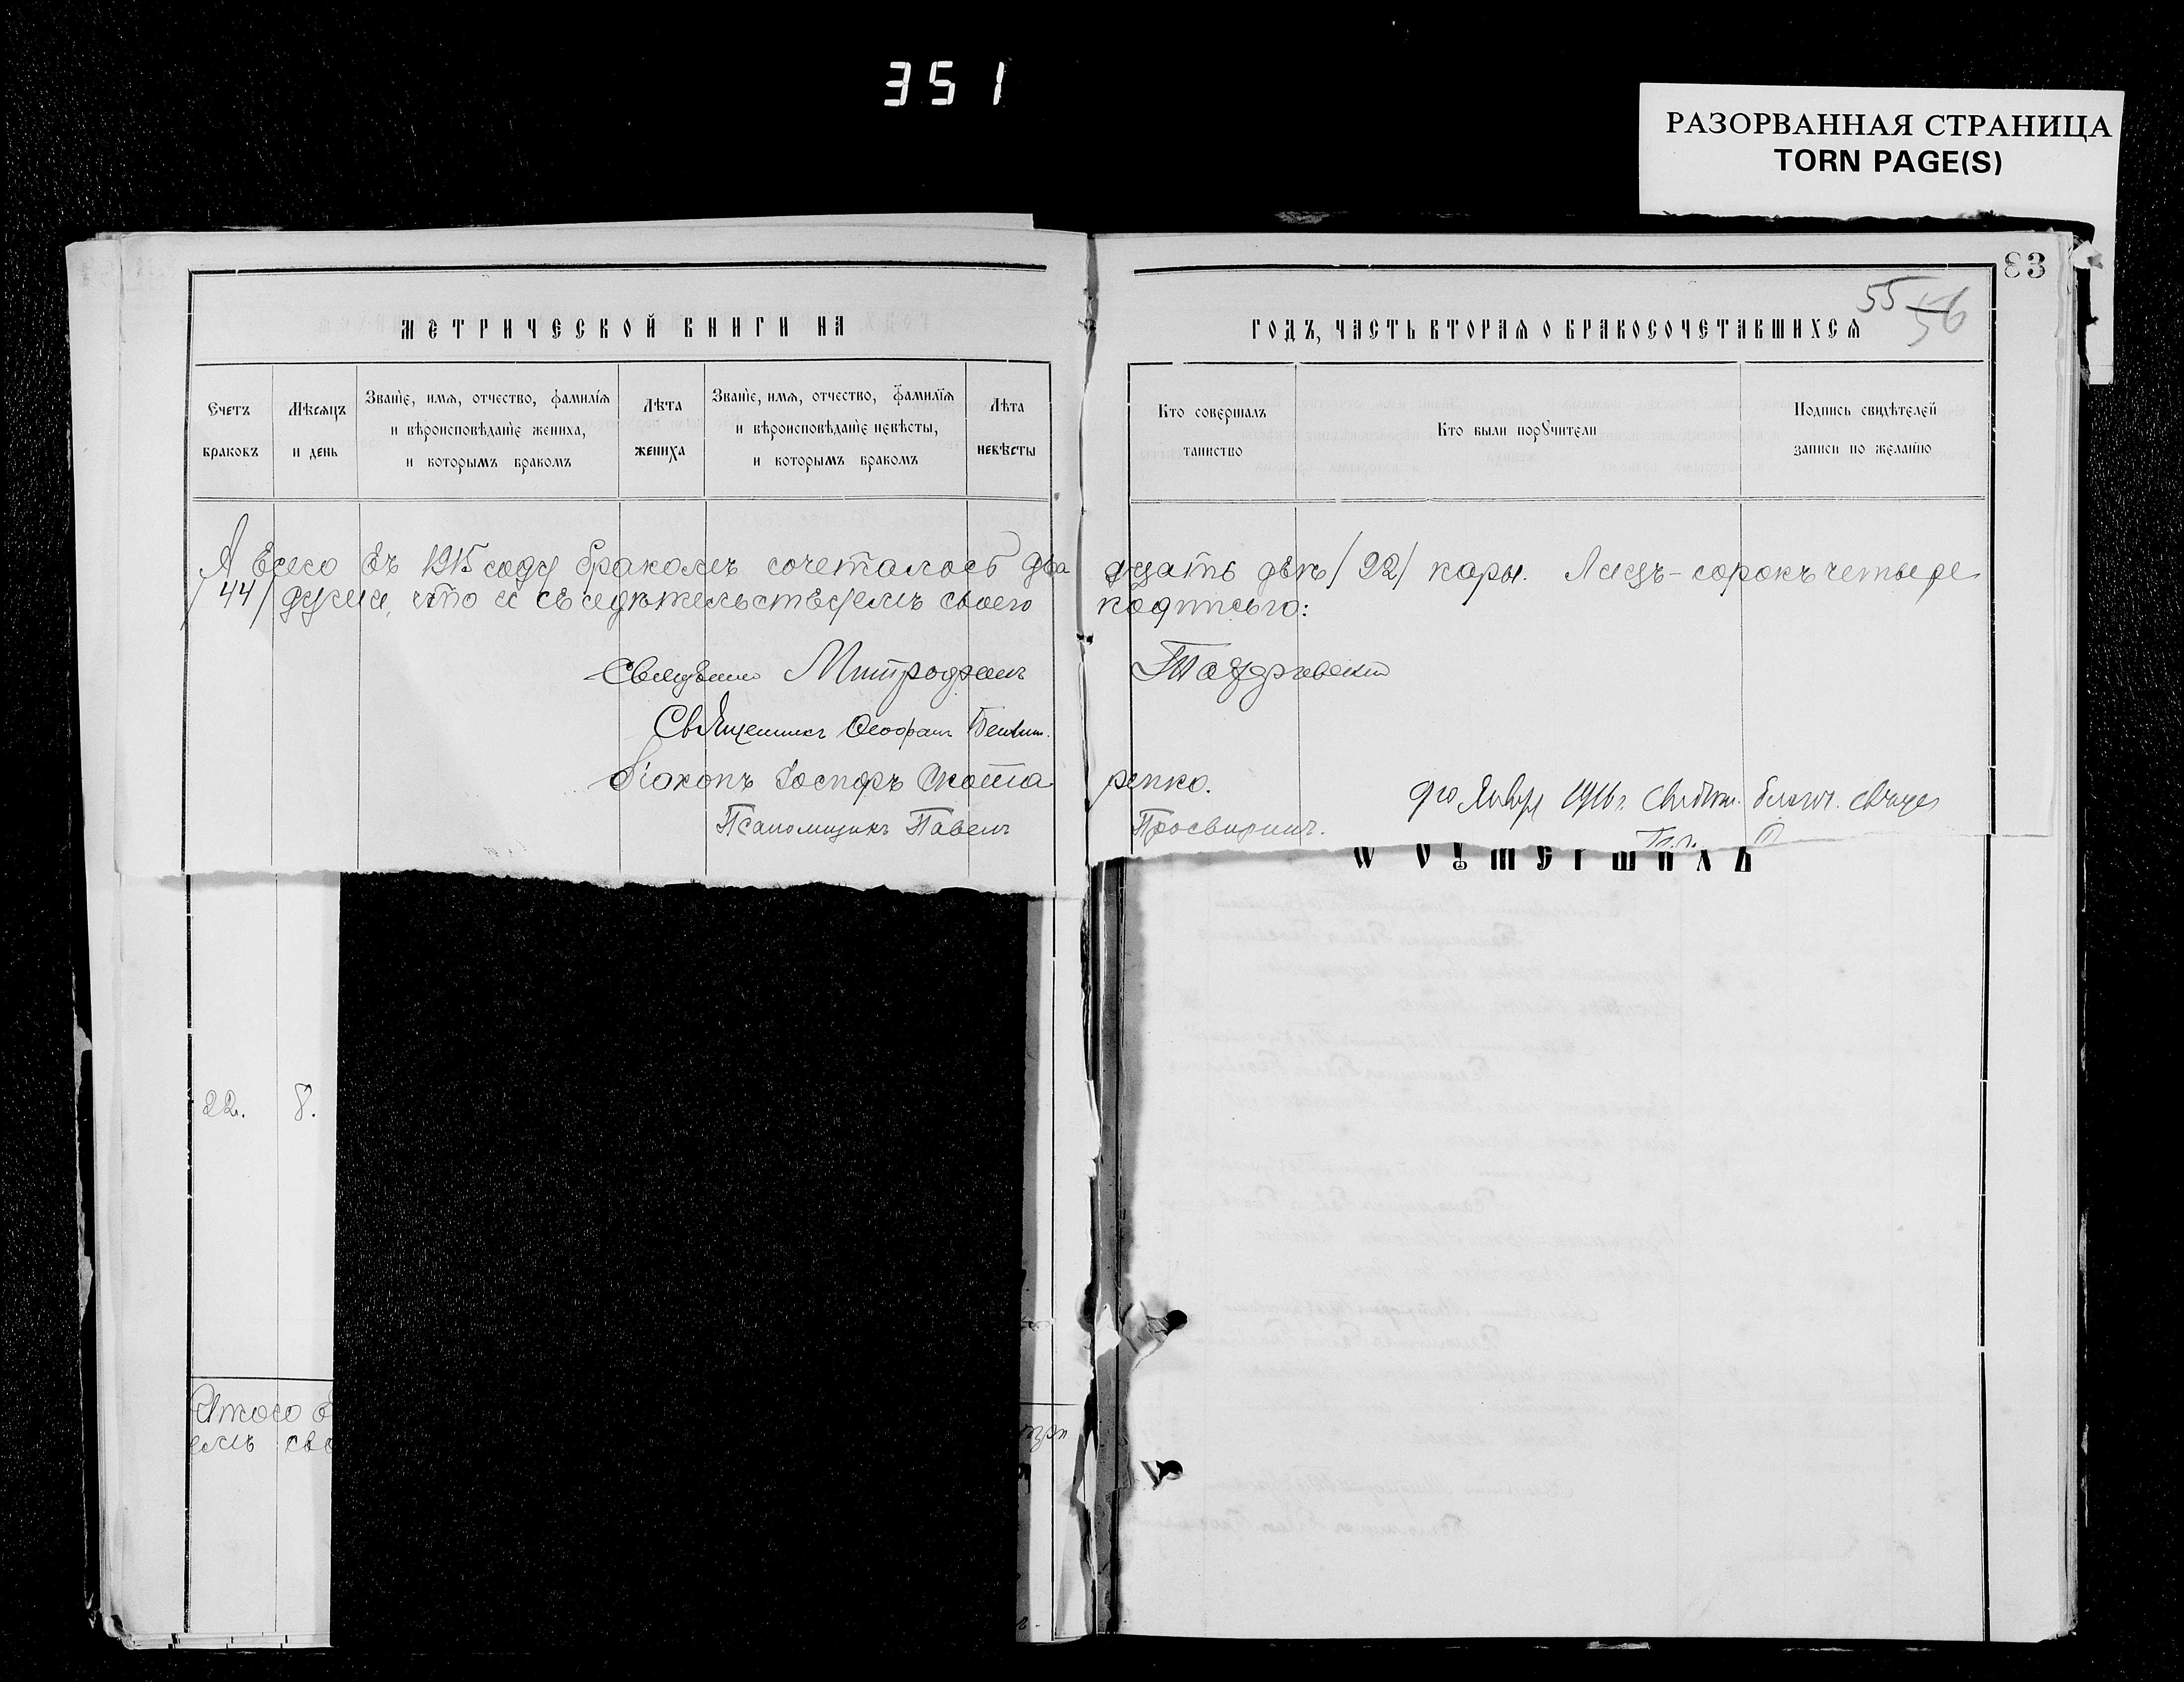 351
РАЗОРВАННАЯ СТРАНИЦА
TORN PAGE(S)
83
55 56
МЕТРИЧЕСКОЙ КНИГИ НА ГОДЪ, ЧАСТЬ ВТОРАЯ О БРАКОСОЧЕТАВШИХСЯ
Счетъ браковъ
Мѣсяцъ и день
Званїе, имя, отчество, фамилїя и вѣроисповѣданїе жениха, и которымъ бракомъ
Лѣта жениха
Званїе, имя, отчество, фамилїя и вѣроисповѣданїе невѣсты, и которымъ бракомъ
Лѣта невѣсты
Кто совершалъ таинство
Кто были поручители
Подпись свидѣтелей записи по желанїю
А всего въ 1915 году бракомъ сочеталось двадцать двѣ /22/ пары. Лицъ - сорокъ четыре
/44/ души, что и свидѣтельствуемъ своею подписью:
Священникъ Митрофанъ
Священникъ Ѳеофанъ
Діаконъ Іосифъ Скотаренко.
Псаломщикъ Павелъ Просвиринъ.
1916 г.
О УМЕРШИХЪ
22. 8.
Итого в
емъ сво